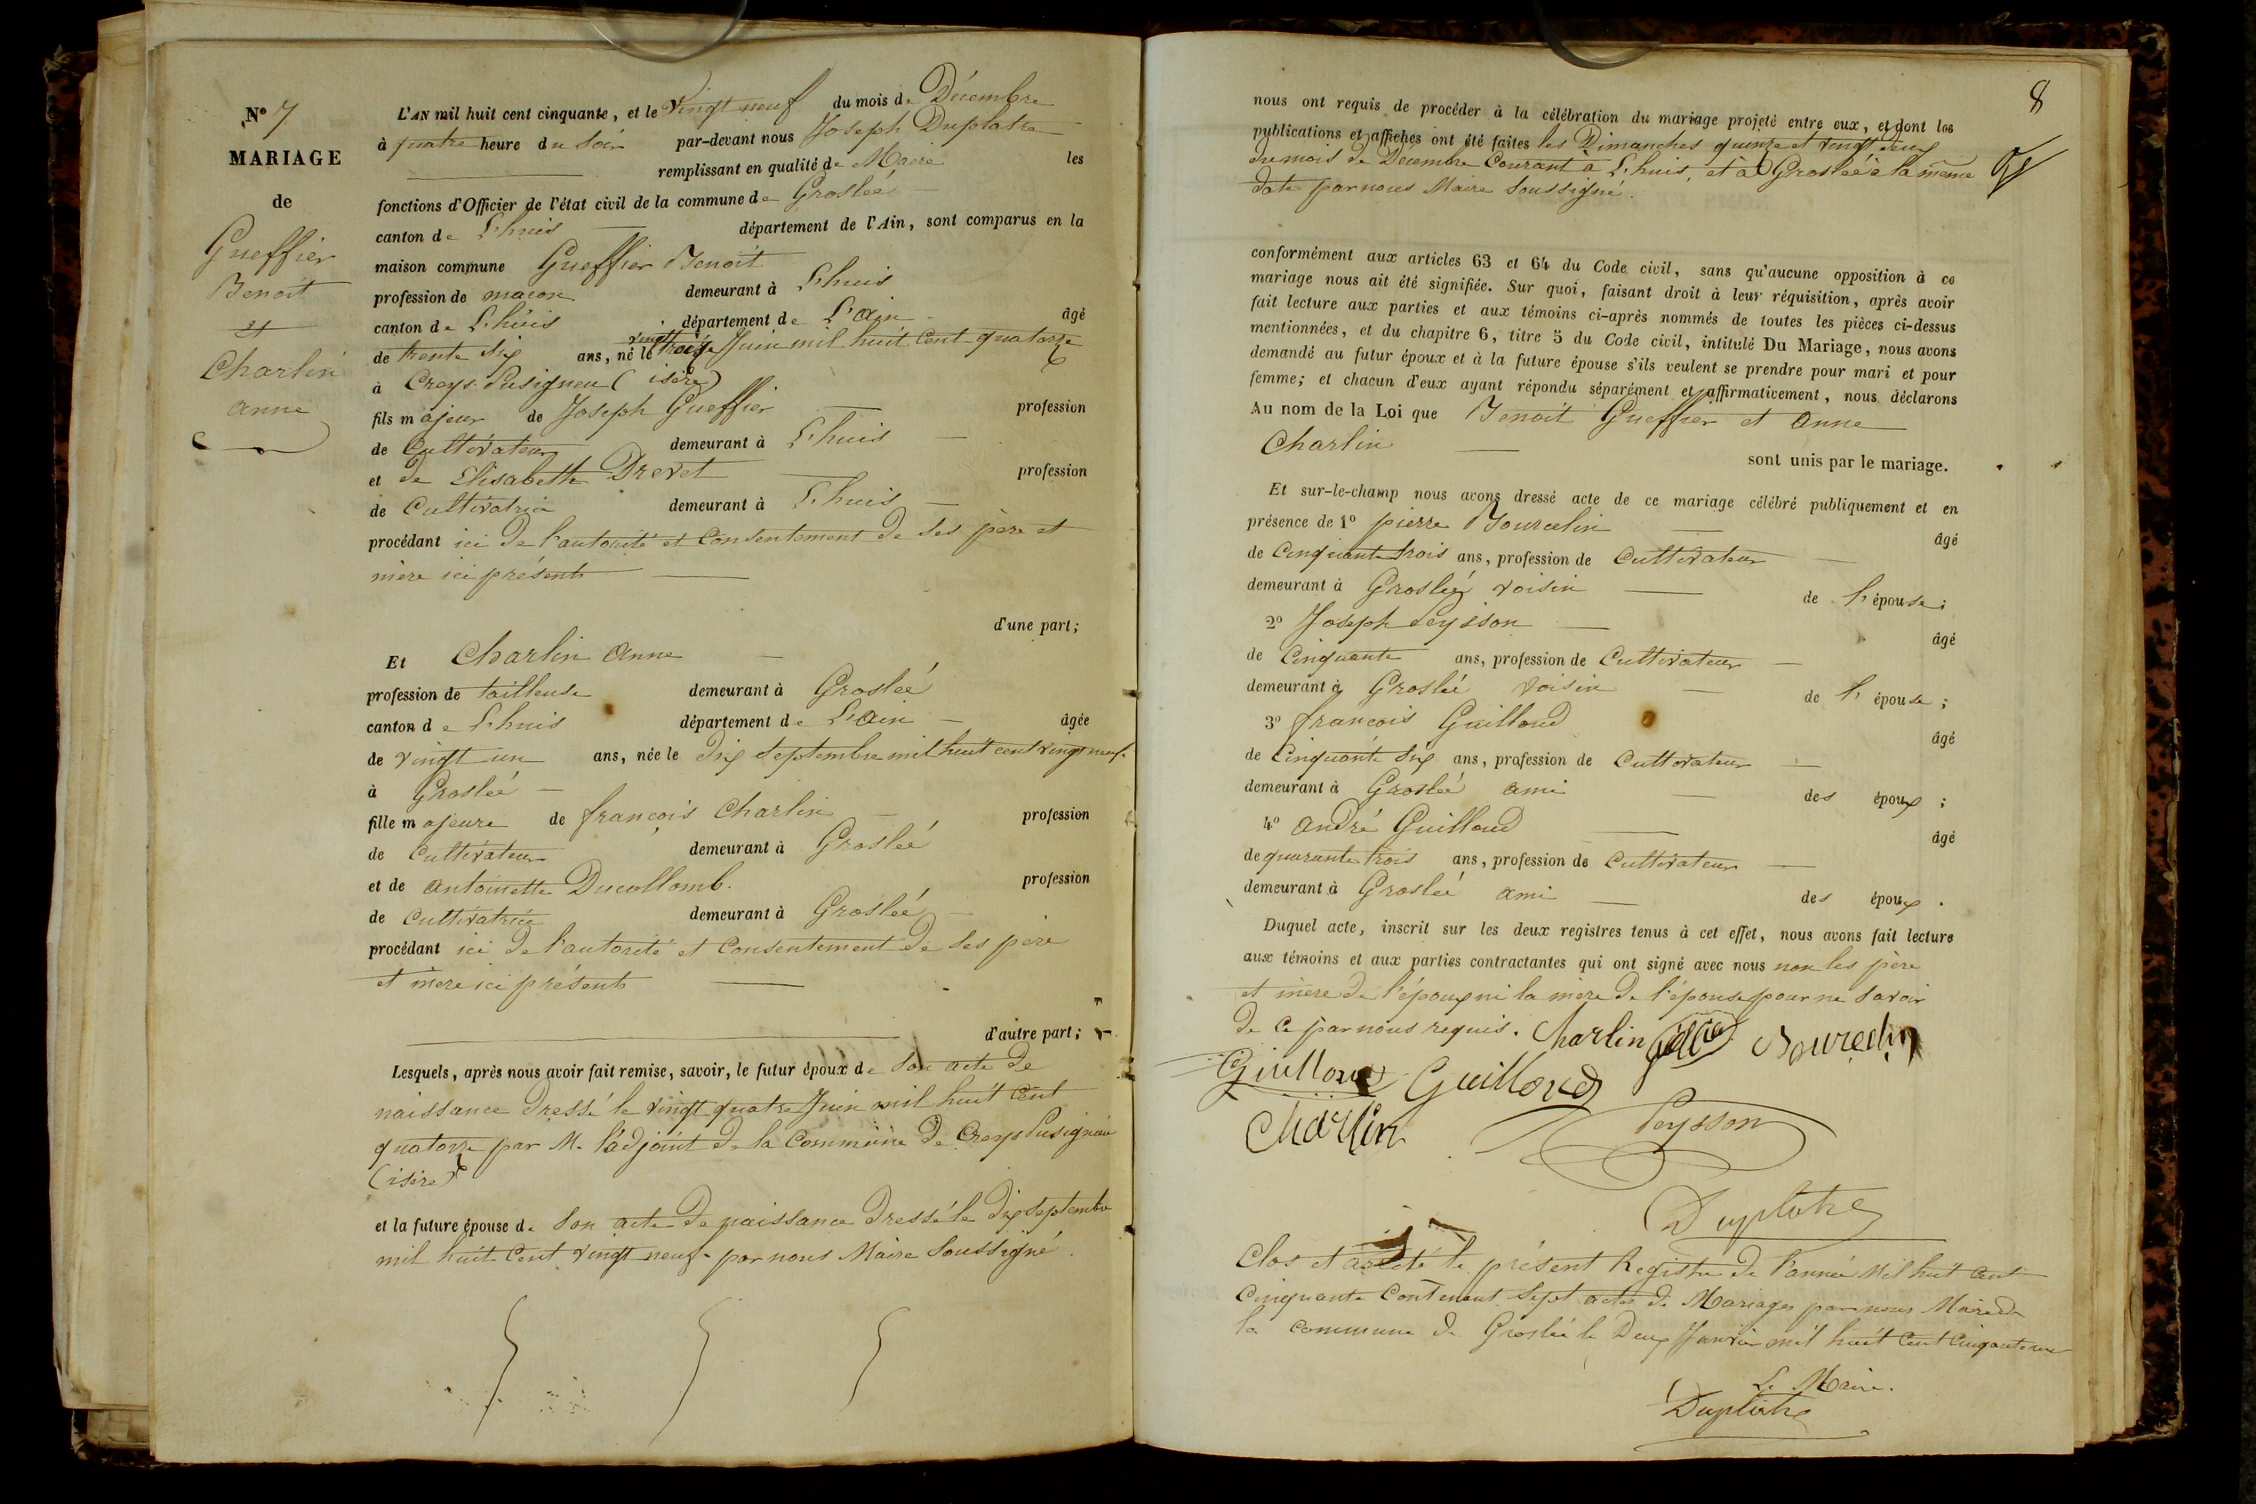 N° 7
MARIAGE
de
Gueffier
Benoit
et
Charlin
anne
L'AN mil huit cent cinquante, et le vingt neuf du mois de Décembre
à quatre heure du soir par-devant nous Joseph Duplatre
remplissant en qualité de Maire les
fonctions d'Officier de l'état civil de la commune de Groslée
canton de L'huis département de l'Ain, sont comparus en la
maison commune Gueffier Benoit
profession de maçon demeurant à L'huis
canton de L'huis département de L'ain âgé
de trente six ans, né le vingt trois Juin mil huit cent quatorze
à Creys Pusigneu (isère)
fils majeur de Joseph Gueffier profession
de Cultivateur demeurant à L'huis
et de Elisabeth Drevet profession
de Cultivatrice demeurant à L'huis
procédant ici de l'autorité et consentement de ses père et
mère ici présents
d'une part;
Et Charlin anne
profession de tailleuse demeurant à Groslée
canton de L'huis département de L'ain âgée
de vingt un ans, née le dix septembre mil huit cent vingt neuf.
à Groslée
fille majeure de françois Charlin profession
de cultivateur demeurant à Groslée
et de antoinette Ducollomb. profession
de cultivatrice demeurant à Groslée
procédant ici de l'autorité et consentement de ses père
et mère ici présents
d'autre part;
Lesquels, après nous avoir fait remise, savoir, le futur époux de son acte de
naissance dressé le vingt quatre Juin mil huit cent
quatorze par M. l'adjoint de la commune de Creys Pusigneu
(isère)
et la future épouse de son acte de naissance dressé le dix septembre
mil huit cent vingt neuf par nous Maire soussigné.
8
nous ont requis de procéder à la célébration du mariage projeté entre eux, et dont les
publications et affiches ont été faites les Dimanches quinze et vingt deux
du mois de Décembre Courant à L'huis, et à Groslée à la même
date par nous Maire soussigné.
conformément aux articles 63 et 64 du Code civil, sans qu'aucune opposition à ce
mariage nous ait été signifiée. Sur quoi, faisant droit à leur réquisition, après avoir
fait lecture aux parties et aux témoins ci-après nommés de toutes les pièces ci-dessus
mentionnées, et du chapitre 6, titre 5 du Code civil, intitulé Du Mariage, nous avons
demandé au futur époux et à la future épouse s'ils veulent se prendre pour mari et pour
femme; et chacun d'eux ayant répondu séparément et affirmativement, nous déclarons
Au nom de la Loi que Benoit Gueffier et anne
Charlin
sont unis par le mariage.
Et sur-le-champ nous avons dressé acte de ce mariage célébré publiquement et en
présence de 1° pierre Bourcelin âgé
de Cinquante trois ans, profession de Cultivateur
demeurant à Groslée voisin de l'épouse;
2° Joseph Peysson âgé
de Cinquante ans, profession de Cultivateur
demeurant à Groslée voisin de l'épouse;
3° françois Guilloud âgé
de Cinquante six ans, profession de Cultivateur
demeurant à Groslée ami des époux;
4° andré Guilloud âgé
de quarante trois ans, profession de Cultivateur
demeurant à Groslée ami des époux.
Duquel acte, inscrit sur les deux registres tenus à cet effet, nous avons fait lecture
aux témoins et aux parties contractantes qui ont signé avec nous non les père
et mère de l'époux ni la mère de l'épouse pour ne savoir
de ce par nous requis. Charlin Bourcelin
Guilloud Guilloud
Charlin Peysson
Duplatre
Clos et arrêté le présent Registre de l'année Mil huit Cent
Cinquante Contenant sept actes de Mariages par nous Maire de
la commune de Groslée le Deux Janvier mil huit Cent Cinquante un
Le Maire.
Duplatre